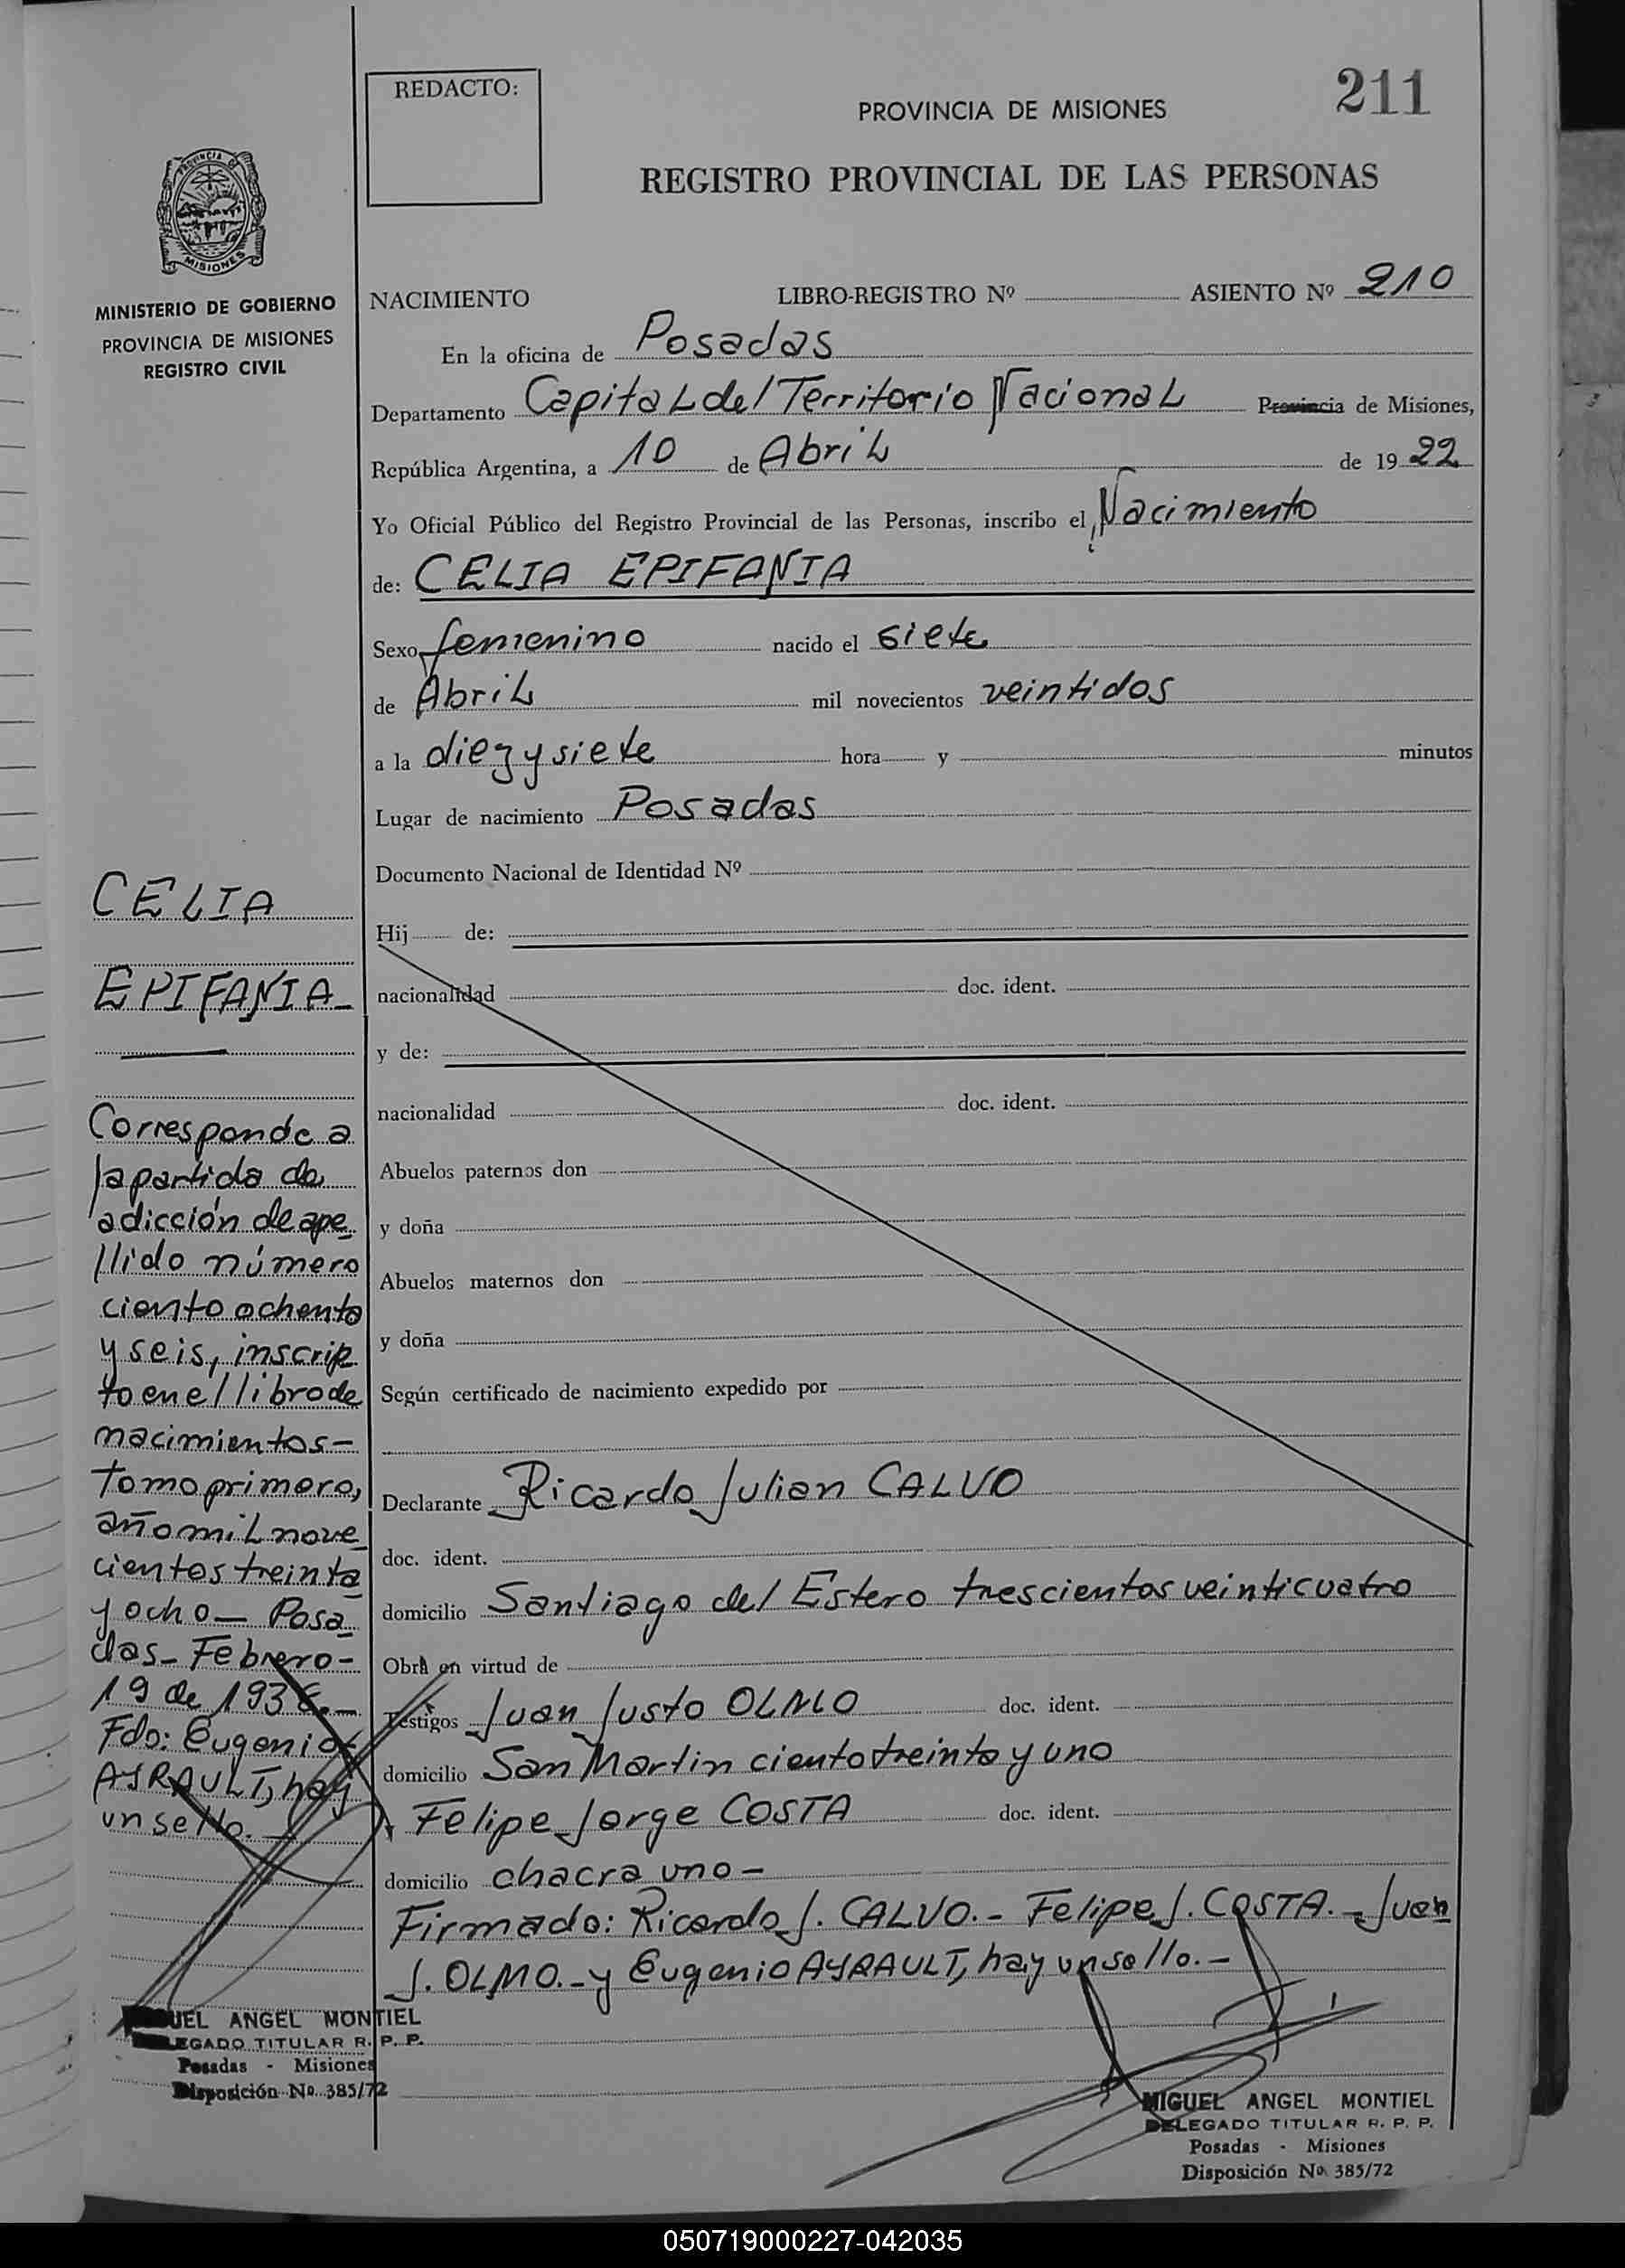 REDACTO:
211
PROVINCIA DE MISIONES
REGISTRO PROVINCIAL DE LAS PERSONAS
PROVINCIA DE
MISIONES
MINISTERIO DE GOBIERNO
PROVINCIA DE MISIONES
REGISTRO CIVIL
NACIMIENTO LIBRO-REGISTRO Nº ASIENTO Nº 210
En la oficina de Posadas
Departamento Capital del Territorio Nacional Provincia de Misiones,
República Argentina, a 10 de Abril de 1922
Yo Oficial Público del Registro Provincial de las Personas, inscribo el Nacimiento
de: CELIA EPIFANIA
Sexo femenino nacido el siete
de Abril mil novecientos veintidos
a la diez y siete hora y minutos
Lugar de nacimiento Posadas
Documento Nacional de Identidad Nº
Hij de:
nacionalidad doc. ident.
y de:
nacionalidad doc. ident.
Abuelos paternos don
y doña
Abuelos maternos don
y doña
Según certificado de nacimiento expedido por
Declarante Ricardo Julian CALVO
doc. ident.
domicilio Santiago del Estero trescientos veinticuatro
Obra en virtud de
Testigos Juan Justo OLMO doc. ident.
domicilio San Martin ciento treinta y uno
Felipe Jorge COSTA doc. ident.
domicilio chacra uno -
Firmado: Ricardo J. CALVO.- Felipe J. COSTA.- Juan
J. OLMO.- y Eugenio AYRAULT, hay un sello.-
CELIA
EPIFANIA-
Corresponde a
la partida de
adicción de ape
llido número
ciento ochenta
y seis, inscrip
to en el libro de
nacimientos-
tomo primero,
año mil nove
cientos treinta
y ocho- Posa
das- Febrero-
19 de 1938.-
Fdo: Eugenio
AYRAULT, hay
un sello.-
MIGUEL ANGEL MONTIEL
DELEGADO TITULAR R. P. P.
Posadas - Misiones
Disposición No. 385/72
MIGUEL ANGEL MONTIEL
DELEGADO TITULAR R. P. P.
Posadas - Misiones
Disposición No. 385/72
050719000227-042035